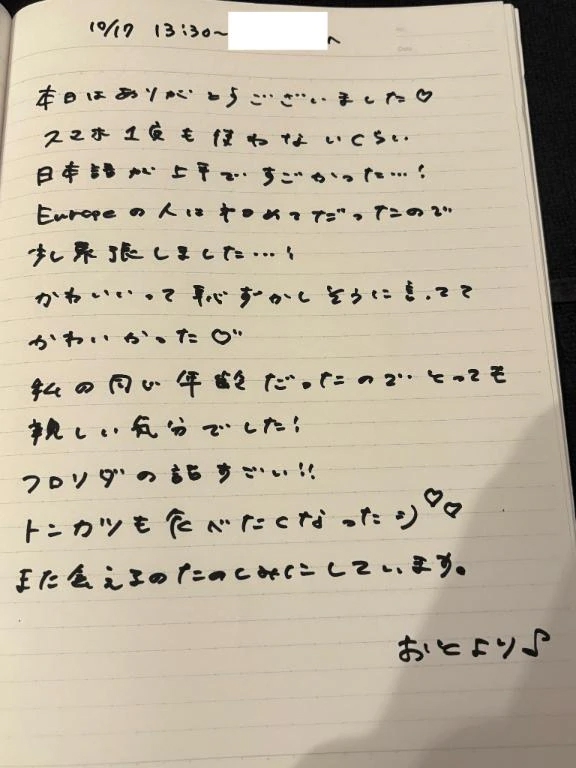 10/17 13:30~
本日はありがとうございました♡
スマホ1度も使わないくらい
日本語が上手ですごかった…!
Europeの人は初めてだったので
少し緊張しました…!
かわいいって恥ずかしそうに言ってて
かわいかった♡
私の同い年齢だったのでとっても
親しい気分でした!
フロリダの話すごい!!
トンカツも食べたくなった :) ♡♡
また会えるのたのしみにしています。
おとより♪